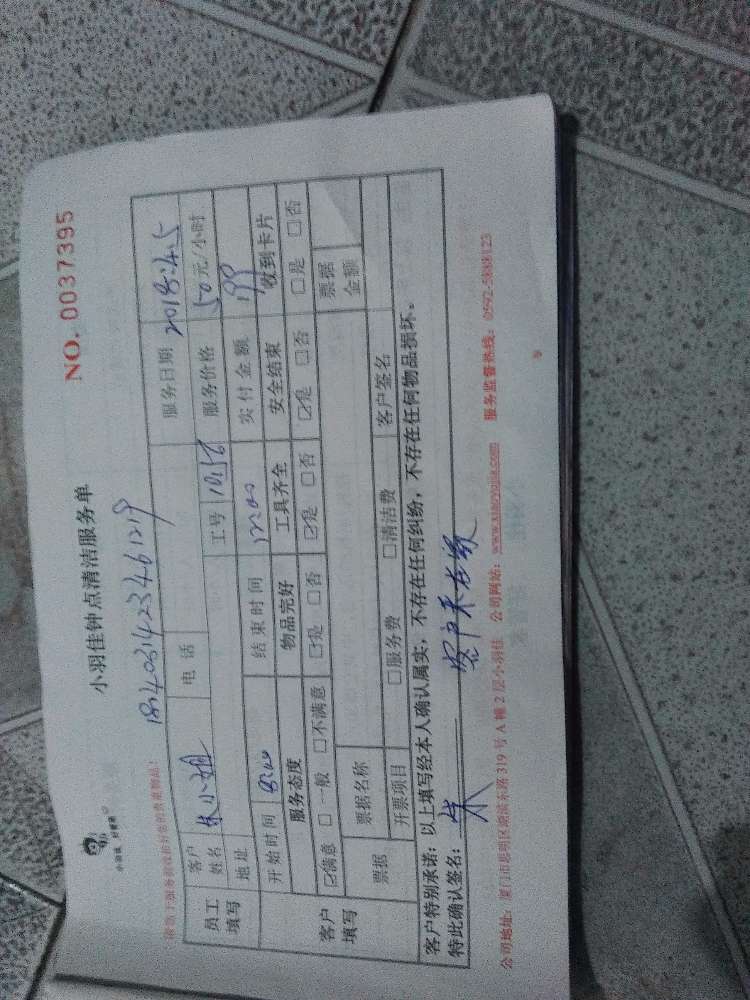 小羽佳 好管家
NO. 0037395
小羽佳钟点清洁服务单
请做
员工填写
客户姓名 朱小姐 电话 服务日期 2018.4.5
地址 工号 服务价格 50元/小时
开始时间 结束时间 实付金额
服务态度 物品完好 工具齐全 安全结束 收到卡片
客户填写
☑满意 □一般 □不满意 ☑是 □否 ☑是 □否 ☑是 □否 □是 □否
票据 票据名称 票据金额
开票项目 □服务费 □清洁费 客户签名
客户特别承诺：以上填写经本人确认属实，不存在任何纠纷，不存在任何物品损坏。
特此确认签名： 朱 客户不在家
公司地址：厦门市思明区湖滨东路319号A幢2层小羽佳 公司网站：www.xiaoyujia.com 服务监督热线：0592-5888123